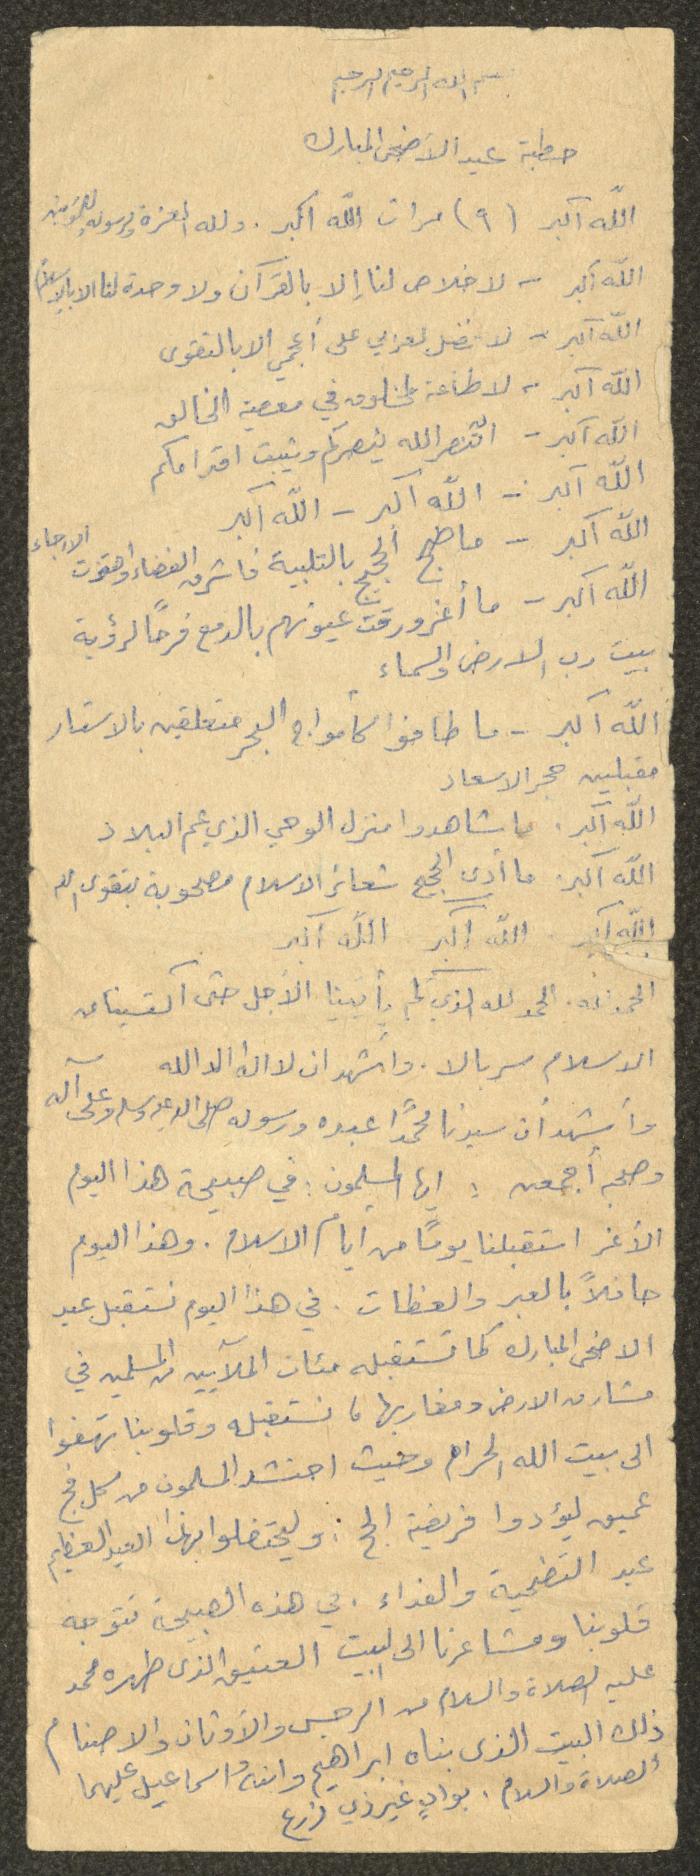 بسم الله الرحمن الرحيم
خطبة عيد الأضحى المبارك
اللّه أكبر (٩) مرات اللّه أكبر . ولله العزة ولرسوله وللمؤمنين
اللّه أكبر - لا خلاص لنا إلا بالقرآن ولا وحدة لنا الا بالإسلام
اللّه أكبر - لا فضل لعربي على أعجمي الا بالتقوى
اللّه أكبر - لا طاعة لمخلوق في معصية الخالق
اللّه أكبر - الله ينصركم ويثبت اقدامكم
اللّه أكبر - اللّه أكبر - اللّه أكبر
اللّه أكبر - ما ضج الحجيج بالتلبية فأشرق الفضاء واهتزت الارجاء
اللّه أكبر - ما أغرورقت عيونهم بالدمع فرحًا لرؤية
بيت رب الارض والسماء
اللّه أكبر - ما طافوا كأمواج البحر متعلقين بالاستار
مقبلين حجر الاسعاد
اللّه أكبر . ما شاهدوا منزل الوحي الذي عم البلاد
اللّه أكبر . ما أدى الحجيج شعائر الاسلام مصحوبة بتقوى الله
اللّه أكبر . اللّه أكبر اللّه أكبر
الحمد لله . الحمد لله الذي لم يأتينا الأجل حتى اكتسينا من
الاسلام سربالا . وأشهد ان لا اله الا الله
وأشهد أن سيدنا محمدًا عبده ورسوله صلى الله عليه وسلم وعلى آله
وصحبه أجمعين : ايها المسلمون : في صبيحة هذا اليوم
الأغر استقبلنا يومًا من ايام الاسلام . وهذا اليوم
حافلاً بالعبر والعظات . في هذا اليوم نستقبل عيد
الاضحى المبارك كما تستقبله مئات الملآيين من المسلمين في
مشارق الارض ومغاربها ، نستقبله وقلوبنا تهفوا
الى بيت الله الحرام وحيث احتشد المسلمون من كل فج
عميق ليؤدوا فريضة الحج : وليحتفلوا بهذا العيد العظيم
عيد التضحية والفداء . في هذه الصبيحة تتوجه
قلوبنا ومشاعرنا الى البيت العتيق الذي طهره محمد
عليه الصلاة والسلام من الرجس والأوثان والاصنام
ذلك البيت الذي بناه ابراهيم وابنه اسماعيل عليهما
الصلاة والسلام . بوادٍ غير ذي زرع